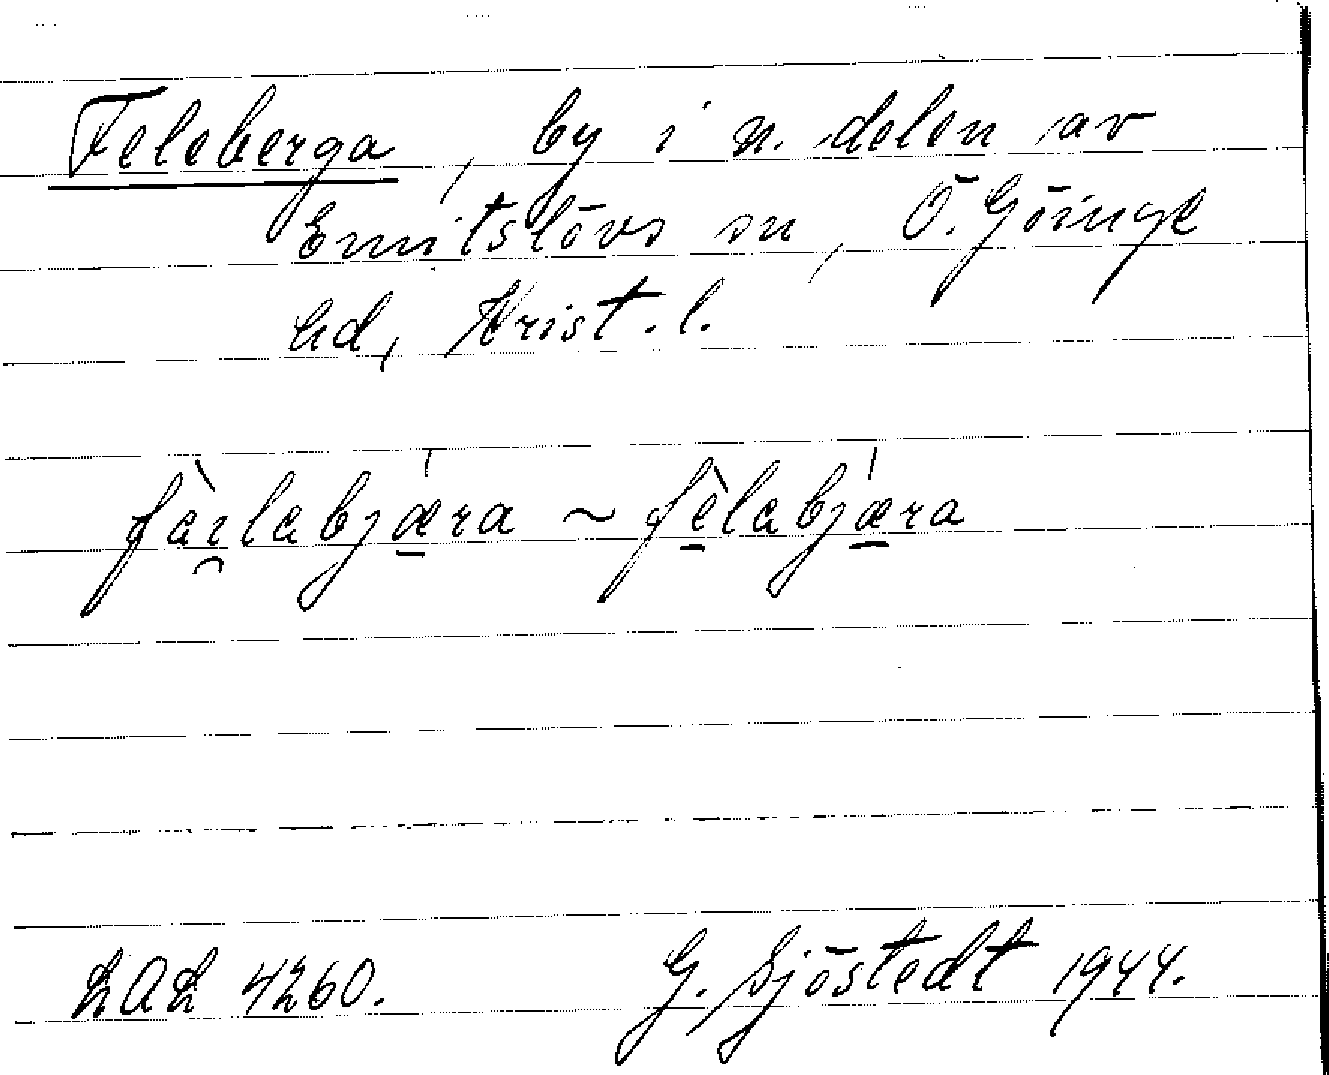 Feleberga, by i n. delen av
Emitslövs sn, Ö. Göinge
hd, Krist. l.
fàı̯labjǽ̠ra ~ fè̠labjǽ̠ra
LAL 4260. G. Sjöstedt 1944.